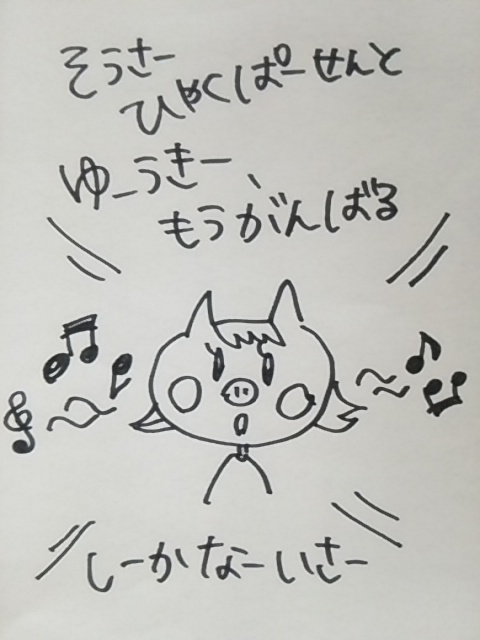 そうさー
ひゃくぱーせんと
ゆーうきー、
もうがんばる
しーかなーいさー